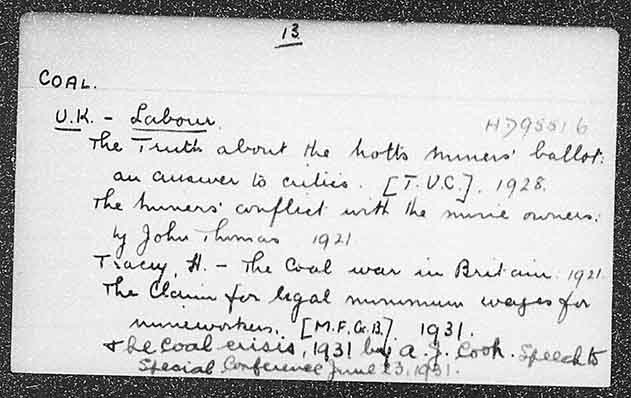 13
COAL.
U.K. - Labour. HD9551 6
The Truth about the Notts miners' ballot:
an answer to critics. [T.U.C.]. 1928.
The miners' conflict with the mine owners.
by John Thomas 1921
Tracey, H. - The Coal war in Britain. 1921.
The Claim for legal minimum wages for
mineworkers. [M.F.G.B.] 1931.
The coal crisis, 1931 by A. J. Cook. Speech to
Special Conference June 23, 1931.